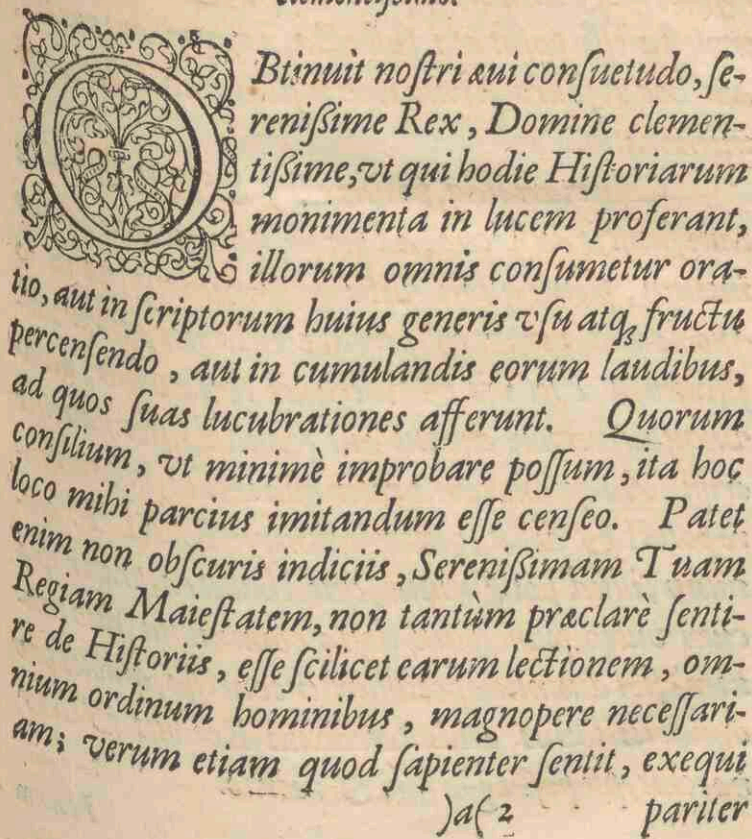 OBtinuit noſtri æui conſuetudo, ſe-
reniſsime Rex, Domine clemen-
tiſsime, vt qui hodie Hiſtoriarum
monimenta in lucem proferant,
illorum omnis conſumetur ora-
tio, aut in ſcriptorum huius generis vſu atq́ꝫ fructu
percenſendo, aut in cumulandis eorum laudibus,
ad quos ſuas lucubrationes afferunt. Quorum
conſilium, vt minimè improbare poſſum, ita hoc
loco mihi parcius imitandum eſſe cenſeo. Patet
enim non obſcuris indiciis, Sereniſsimam Tuam
Regiam Maieſtatem, non tantùm præclarè ſenti-
re de Hiſtoriis, eſſe ſcilicet earum lectionem, om-
nium ordinum hominibus, magnopere neceſſari-
am; verum etiam quod ſapienter ſentit, exequi
)a( 2 pariter